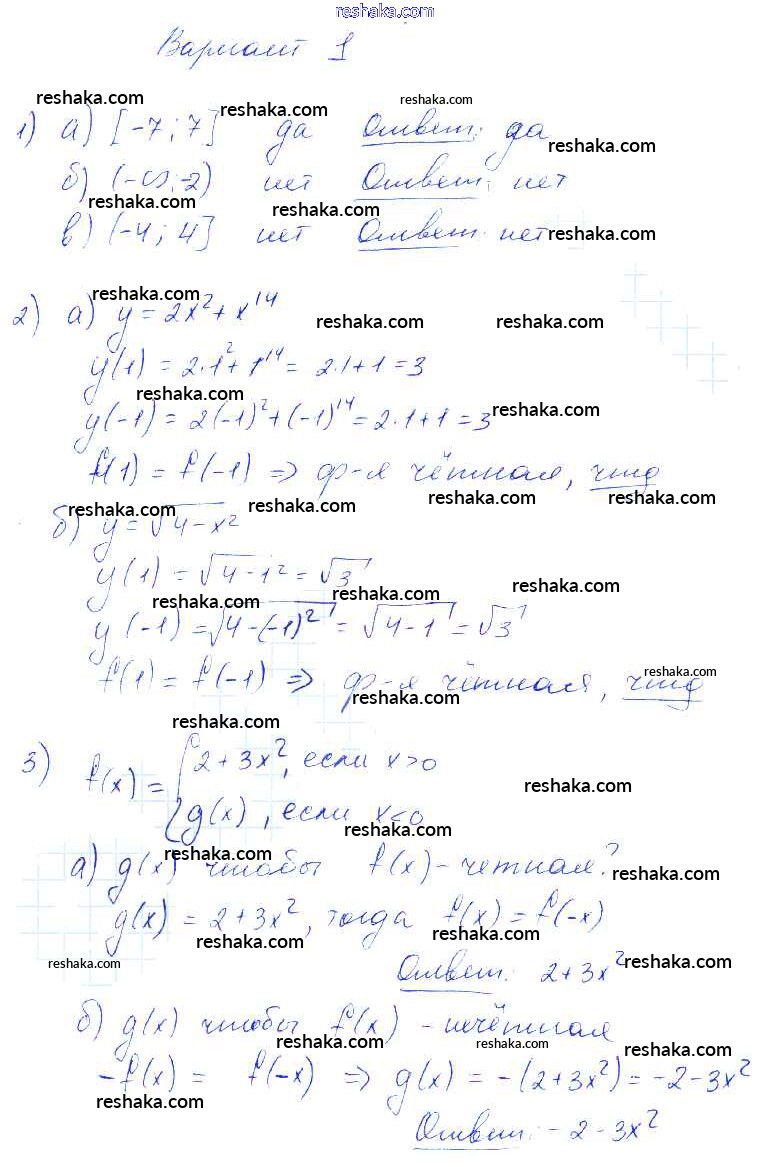 reshaka.com
Вариант 1
reshaka.com reshaka.com reshaka.com
1) а) [-7; 7] да Ответ: да reshaka.com
б) (-∞; -2) нет Ответ: нет
reshaka.com reshaka.com
в) (-4; 4] нет Ответ: нет reshaka.com
reshaka.com
2) а) y = 2x² + x¹⁴ reshaka.com reshaka.com
y(1) = 2·1² + 1¹⁴ = 2·1+1 = 3
reshaka.com
y(-1) = 2(-1)² + (-1)¹⁴ = 2·1+1 = 3 reshaka.com
f(1) = f(-1) => ф-я чётная, чтд
reshaka.com reshaka.com reshaka.com reshaka.com
б) y = √4-x²
y(1) = √4-1² = √3
reshaka.com reshaka.com reshaka.com
y(-1) = √4-(-1)² = √4-1 = √3
f(1) = f(-1) => ф-я чётная, чтд
reshaka.com
reshaka.com
reshaka.com
3) f(x) = { 2+3x², если x>0
reshaka.com
g(x), если x<0
reshaka.com reshaka.com
а) g(x) чтобы f(x) - четная?
reshaka.com
g(x) = 2+3x², тогда f(x) = f(-x)
reshaka.com reshaka.com
reshaka.com Ответ: 2+3x² reshaka.com
б) g(x) чтобы f(x) - нечётная
reshaka.com reshaka.com reshaka.com
-f(x) = f(-x) => g(x) = -(2+3x²) = -2-3x²
reshaka.com reshaka.com
Ответ: -2-3x²